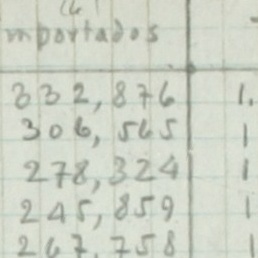 mportados
332,876 1.
306,565 1
278,324 1
245,859 1
267,758 1